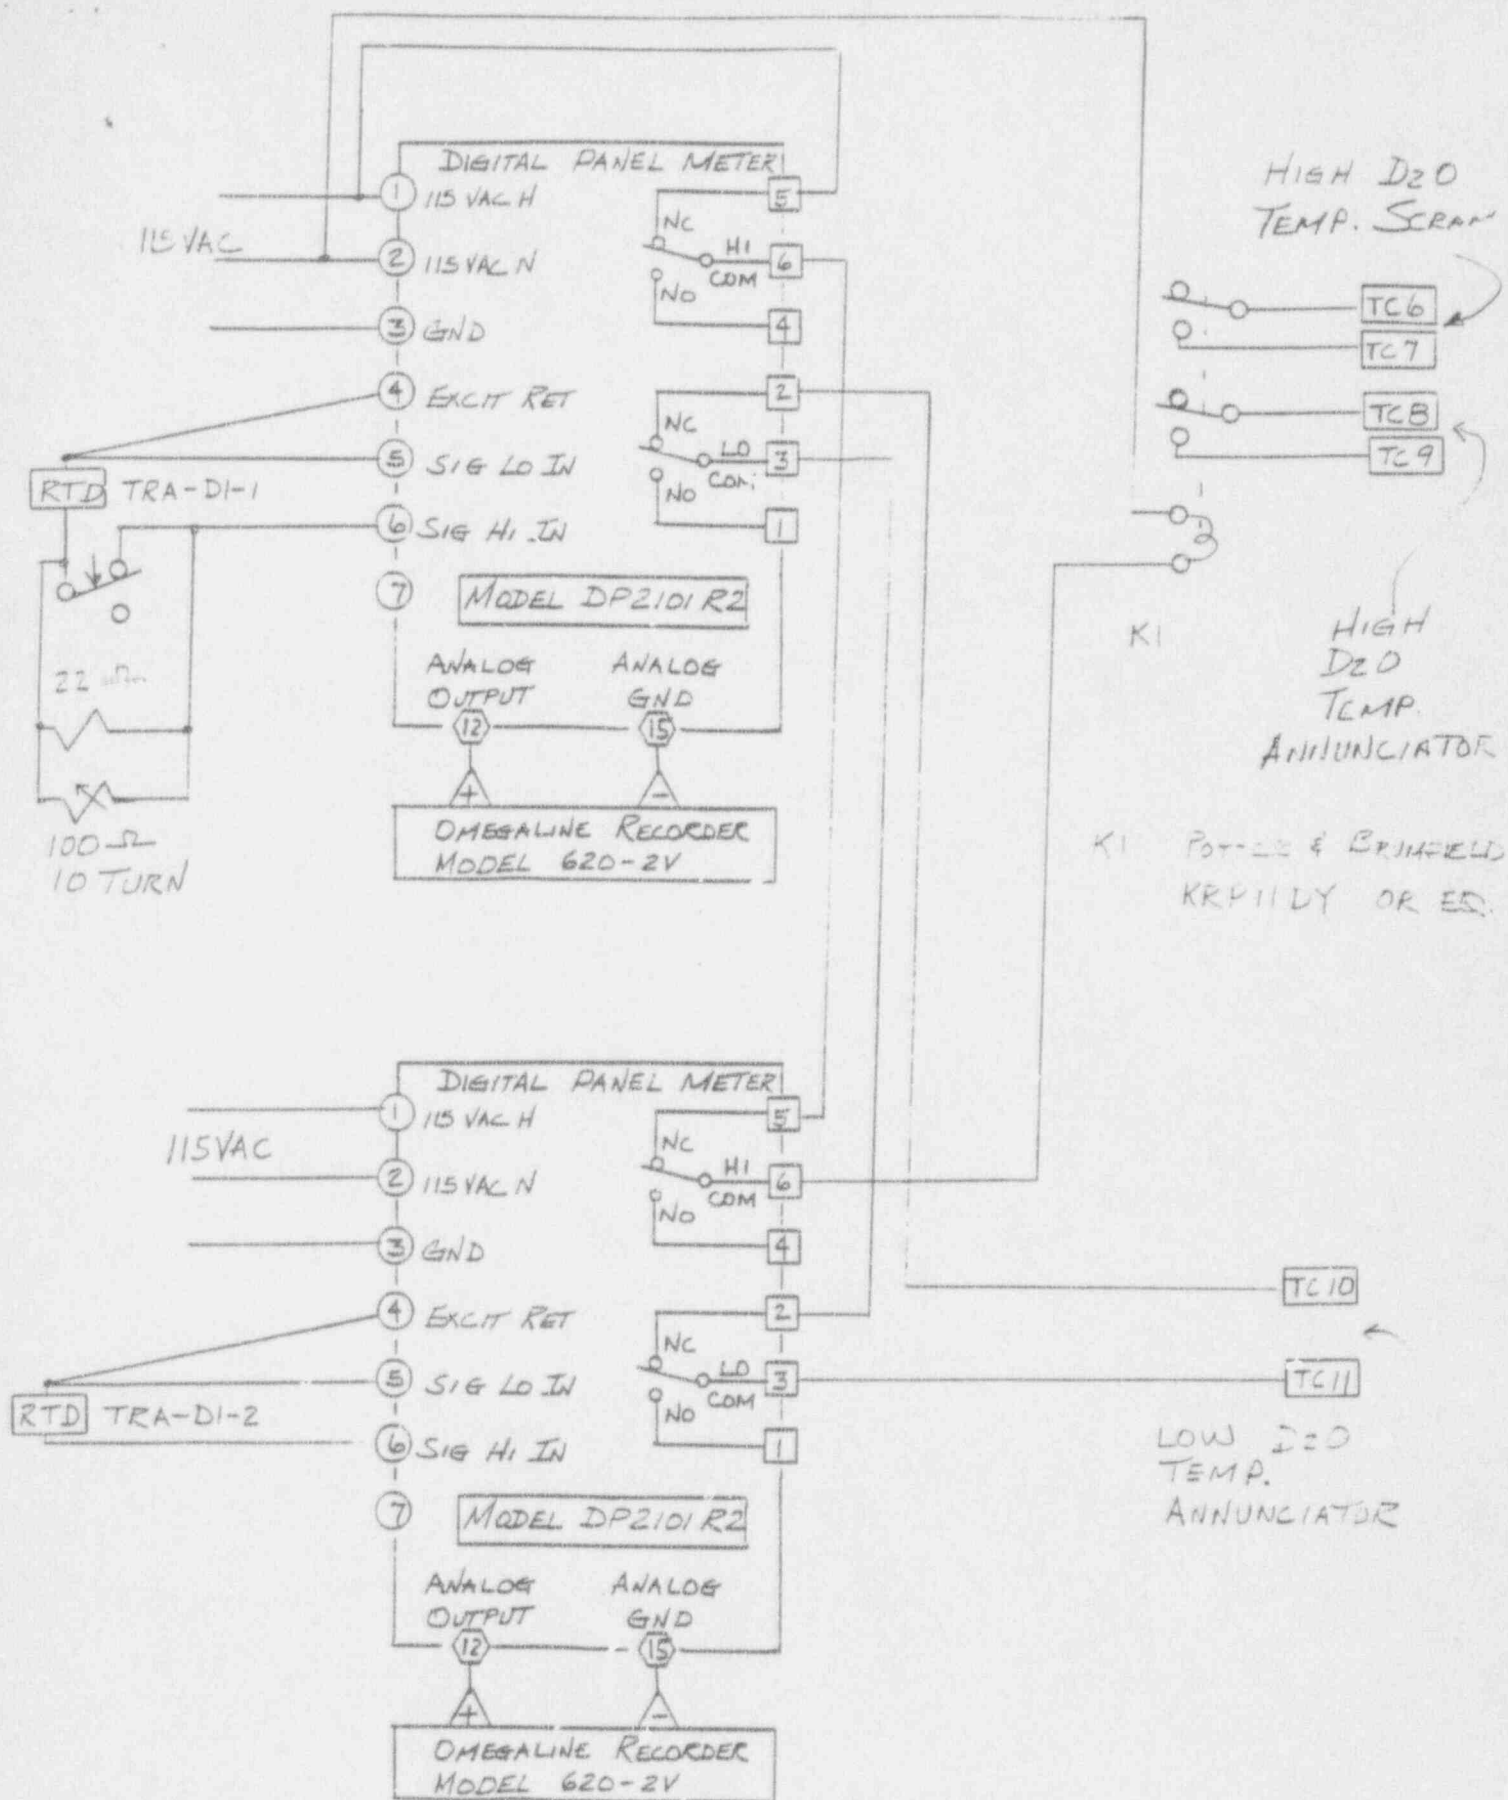 DIGITAL PANEL METER
115 VAC
1 115 VAC H
2 115 VAC N
3 GND
4 EXCIT RET
5 SIG LO IN
6 SIG HI IN
7
MODEL DP2101 R2
NC
HI
COM
NO
5
6
4
NC
LO
COM
NO
2
3
1
RTD TRA-D1-1
22
100 Ω
10 TURN
ANALOG OUTPUT
ANALOG GND
12
15
+
-
OMEGALINE RECORDER
MODEL 620-2V
HIGH D2O
TEMP. SCRAM
TC6
TC7
TC8
TC9
K1
HIGH
D2O
TEMP.
ANNUNCIATOR
K1 & BRUMFIELD
OR EQ.
DIGITAL PANEL METER
115VAC
1 115 VAC H
2 115 VAC N
3 GND
4 EXCIT RET
5 SIG LO IN
6 SIG HI IN
7
MODEL DP2101 R2
NC
HI
COM
NO
5
6
4
NC
LO
COM
NO
2
3
1
RTD TRA-D1-2
ANALOG OUTPUT
ANALOG GND
12
15
+
-
OMEGALINE RECORDER
MODEL 620-2V
TC10
TC11
LOW D2O
TEMP.
ANNUNCIATOR